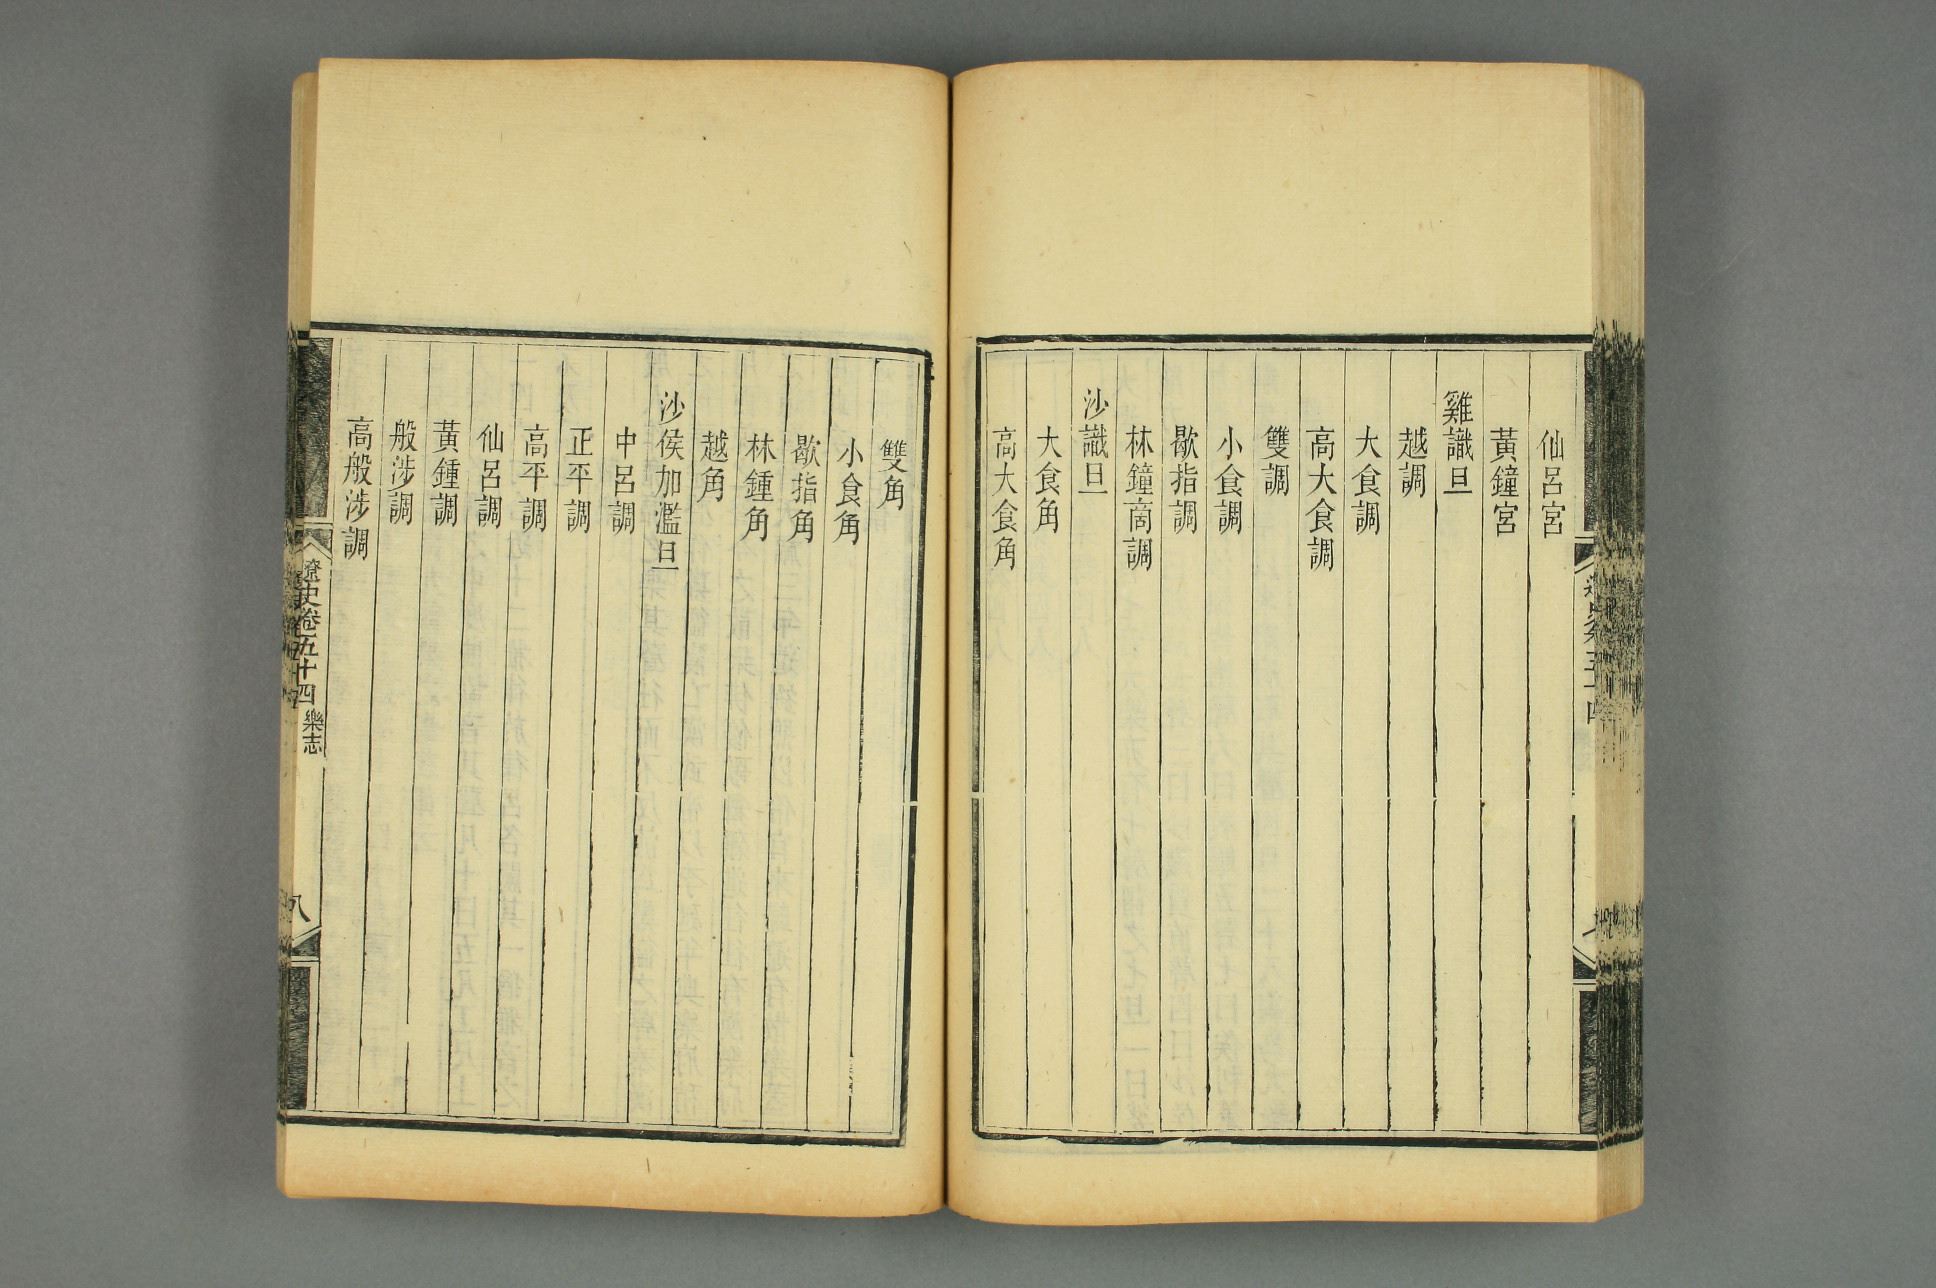 仙呂宮
黃鐘宮
雞識旦
越調
大食調
高大食調
雙調
小食調
歇指調
林鐘商調
沙識旦
大食角
高大食角
雙角
小食角
歇指角
林鍾角
越角
沙侯加濫旦
中呂調
正平調
高平調
仙呂調
黃鍾調
般涉調
高般涉調
遼史卷五十四 樂志
八